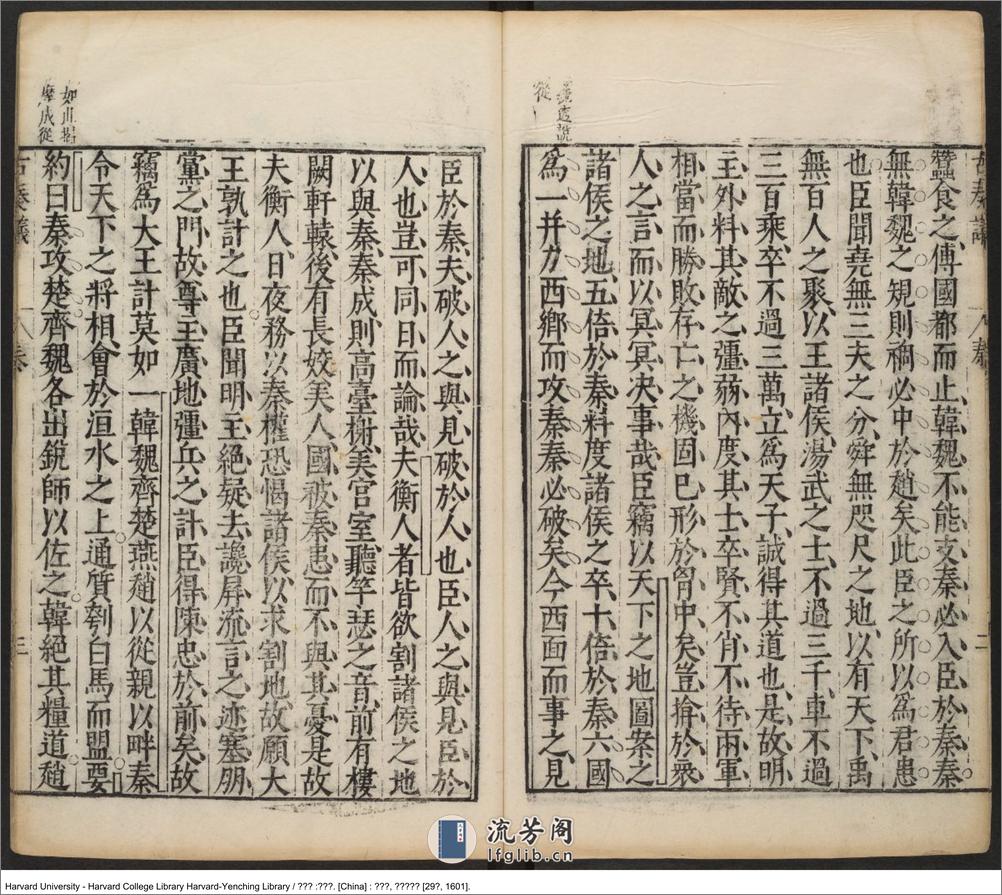 蠶食之傅國都而止韓魏不能支秦必入臣於秦秦
無韓魏之規則禍必中於趙矣此臣之所以爲君患
也臣聞堯無三夫之分舜無咫尺之地以有天下禹
無百人之聚以王諸侯湯武之士不過三千車不過
三百乘卒不過三萬立爲天子誠得其道也是故明
主外料其敵之彊弱內度其士卒賢不肖不待兩軍
相當而勝敗存亡之機固已形於胷中矣豈揜於衆
人之言而以冥冥决事哉臣竊以天下之地圖案之
諸侯之地五倍於秦料度諸侯之卒十倍於秦六國
爲一并力西鄉而攻秦秦必破矣今西面而事之見
從
臣於秦夫破人之與見破於人也臣人之與見臣於
人也豈可同日而論哉夫衡人者皆欲割諸侯之地
以與秦秦成則高臺榭美宫室聽竽瑟之音前有樓
闕軒轅後有長姣美人國被秦患而不與其憂是故
夫衡人日夜務以秦權恐愒諸侯以求割地故願大
王孰計之也臣聞明主絕疑去讒屏流言之迹塞朋
黨之門故尊主廣地彊兵之計臣得陳忠於前矣故
竊爲大王計莫如一韓魏齊楚燕趙以從親以畔秦
令天下之將相會於洹水之上通質刳白馬而盟要
約曰秦攻楚齊魏各出銳師以佐之韓絕其糧道趙
蘇秦
二
蘇秦
三
流芳阁
lfglib.cn
Harvard University - Harvard College Library Harvard-Yenching Library / ??? :???. [China] : ???, ????? [29?, 1601].